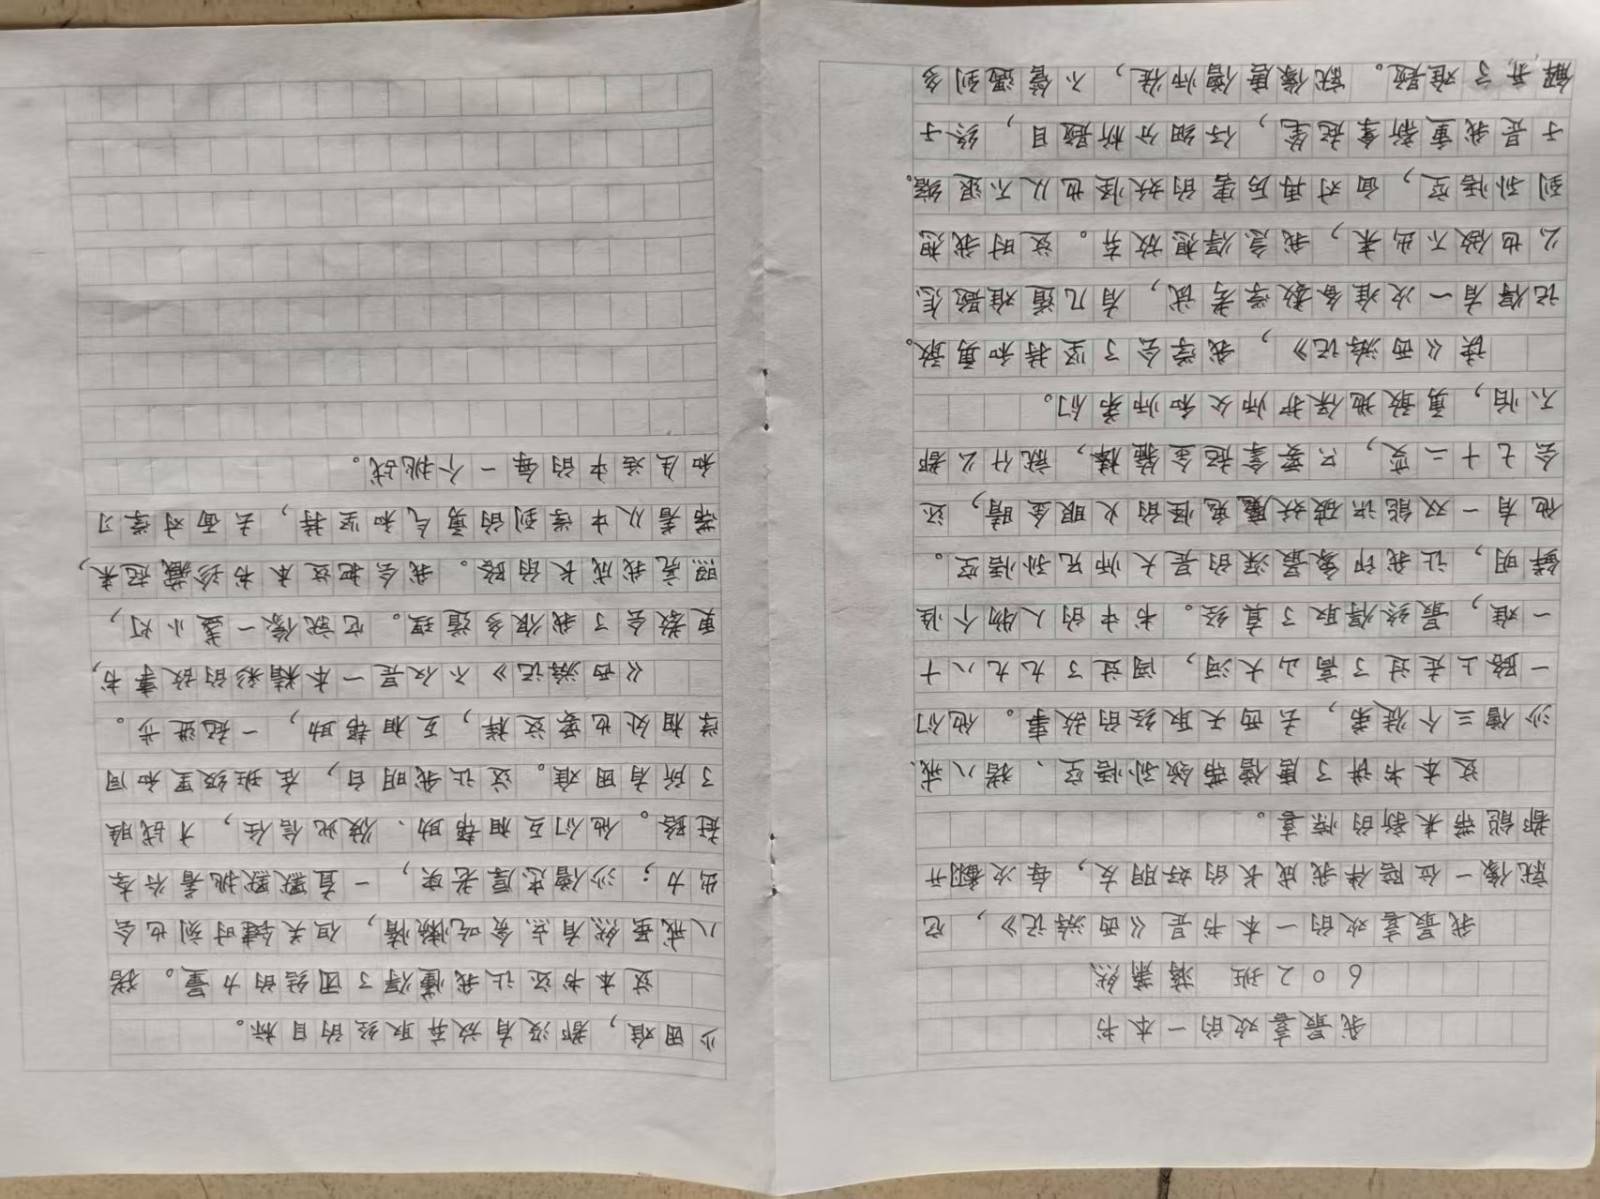 我最喜欢的一本书
602班 蒋萧然
我最喜欢的一本书是《西游记》，它
就像一位陪伴我成长的好朋友，每次翻开
都能带来新的惊喜。
这本书讲了唐僧带领孙悟空、猪八戒、
沙僧三个徒弟，去西天取经的故事。他们
一路上走过了高山大河，闯过了九九八十
一难，最终得取了真经。书中的人物个性
鲜明，让我印象最深的是大师兄孙悟空。
他有一双能识破妖魔鬼怪的火眼金睛，还
会七十二变，只要拿起金箍棒，就什么都
不怕，勇敢地保护师父和师弟们。
读《西游记》，我学会了坚持和勇敢。
记得有一次准备数学考试，有几道难题怎
么也做不出来，我急得想放弃。这时我想
到孙悟空，面对再厉害的妖怪也从不退缩。
于是我重新拿起笔，仔细分析题目，终于
解开了难题。就像唐僧师徒，不管遇到多
少困难，都没有放弃取经的目标。
这本书还让我懂得了团结的力量。猪
八戒虽然有点贪吃懒惰，但关键时刻也会
出力；沙僧忠厚老实，一直默默挑着行李
赶路。他们互相帮助、彼此信任，才战胜
了所有困难。这让我明白，在班级里和同
学相处也要这样，互相帮助，一起进步。
《西游记》不仅是一本精彩的故事书，
更教会了我很多道理。它就像一盏小灯，
照亮我成长的路。我会把这本书珍藏起来，
带着从中学到的勇气和坚持，去面对学习
和生活中的每一个挑战。